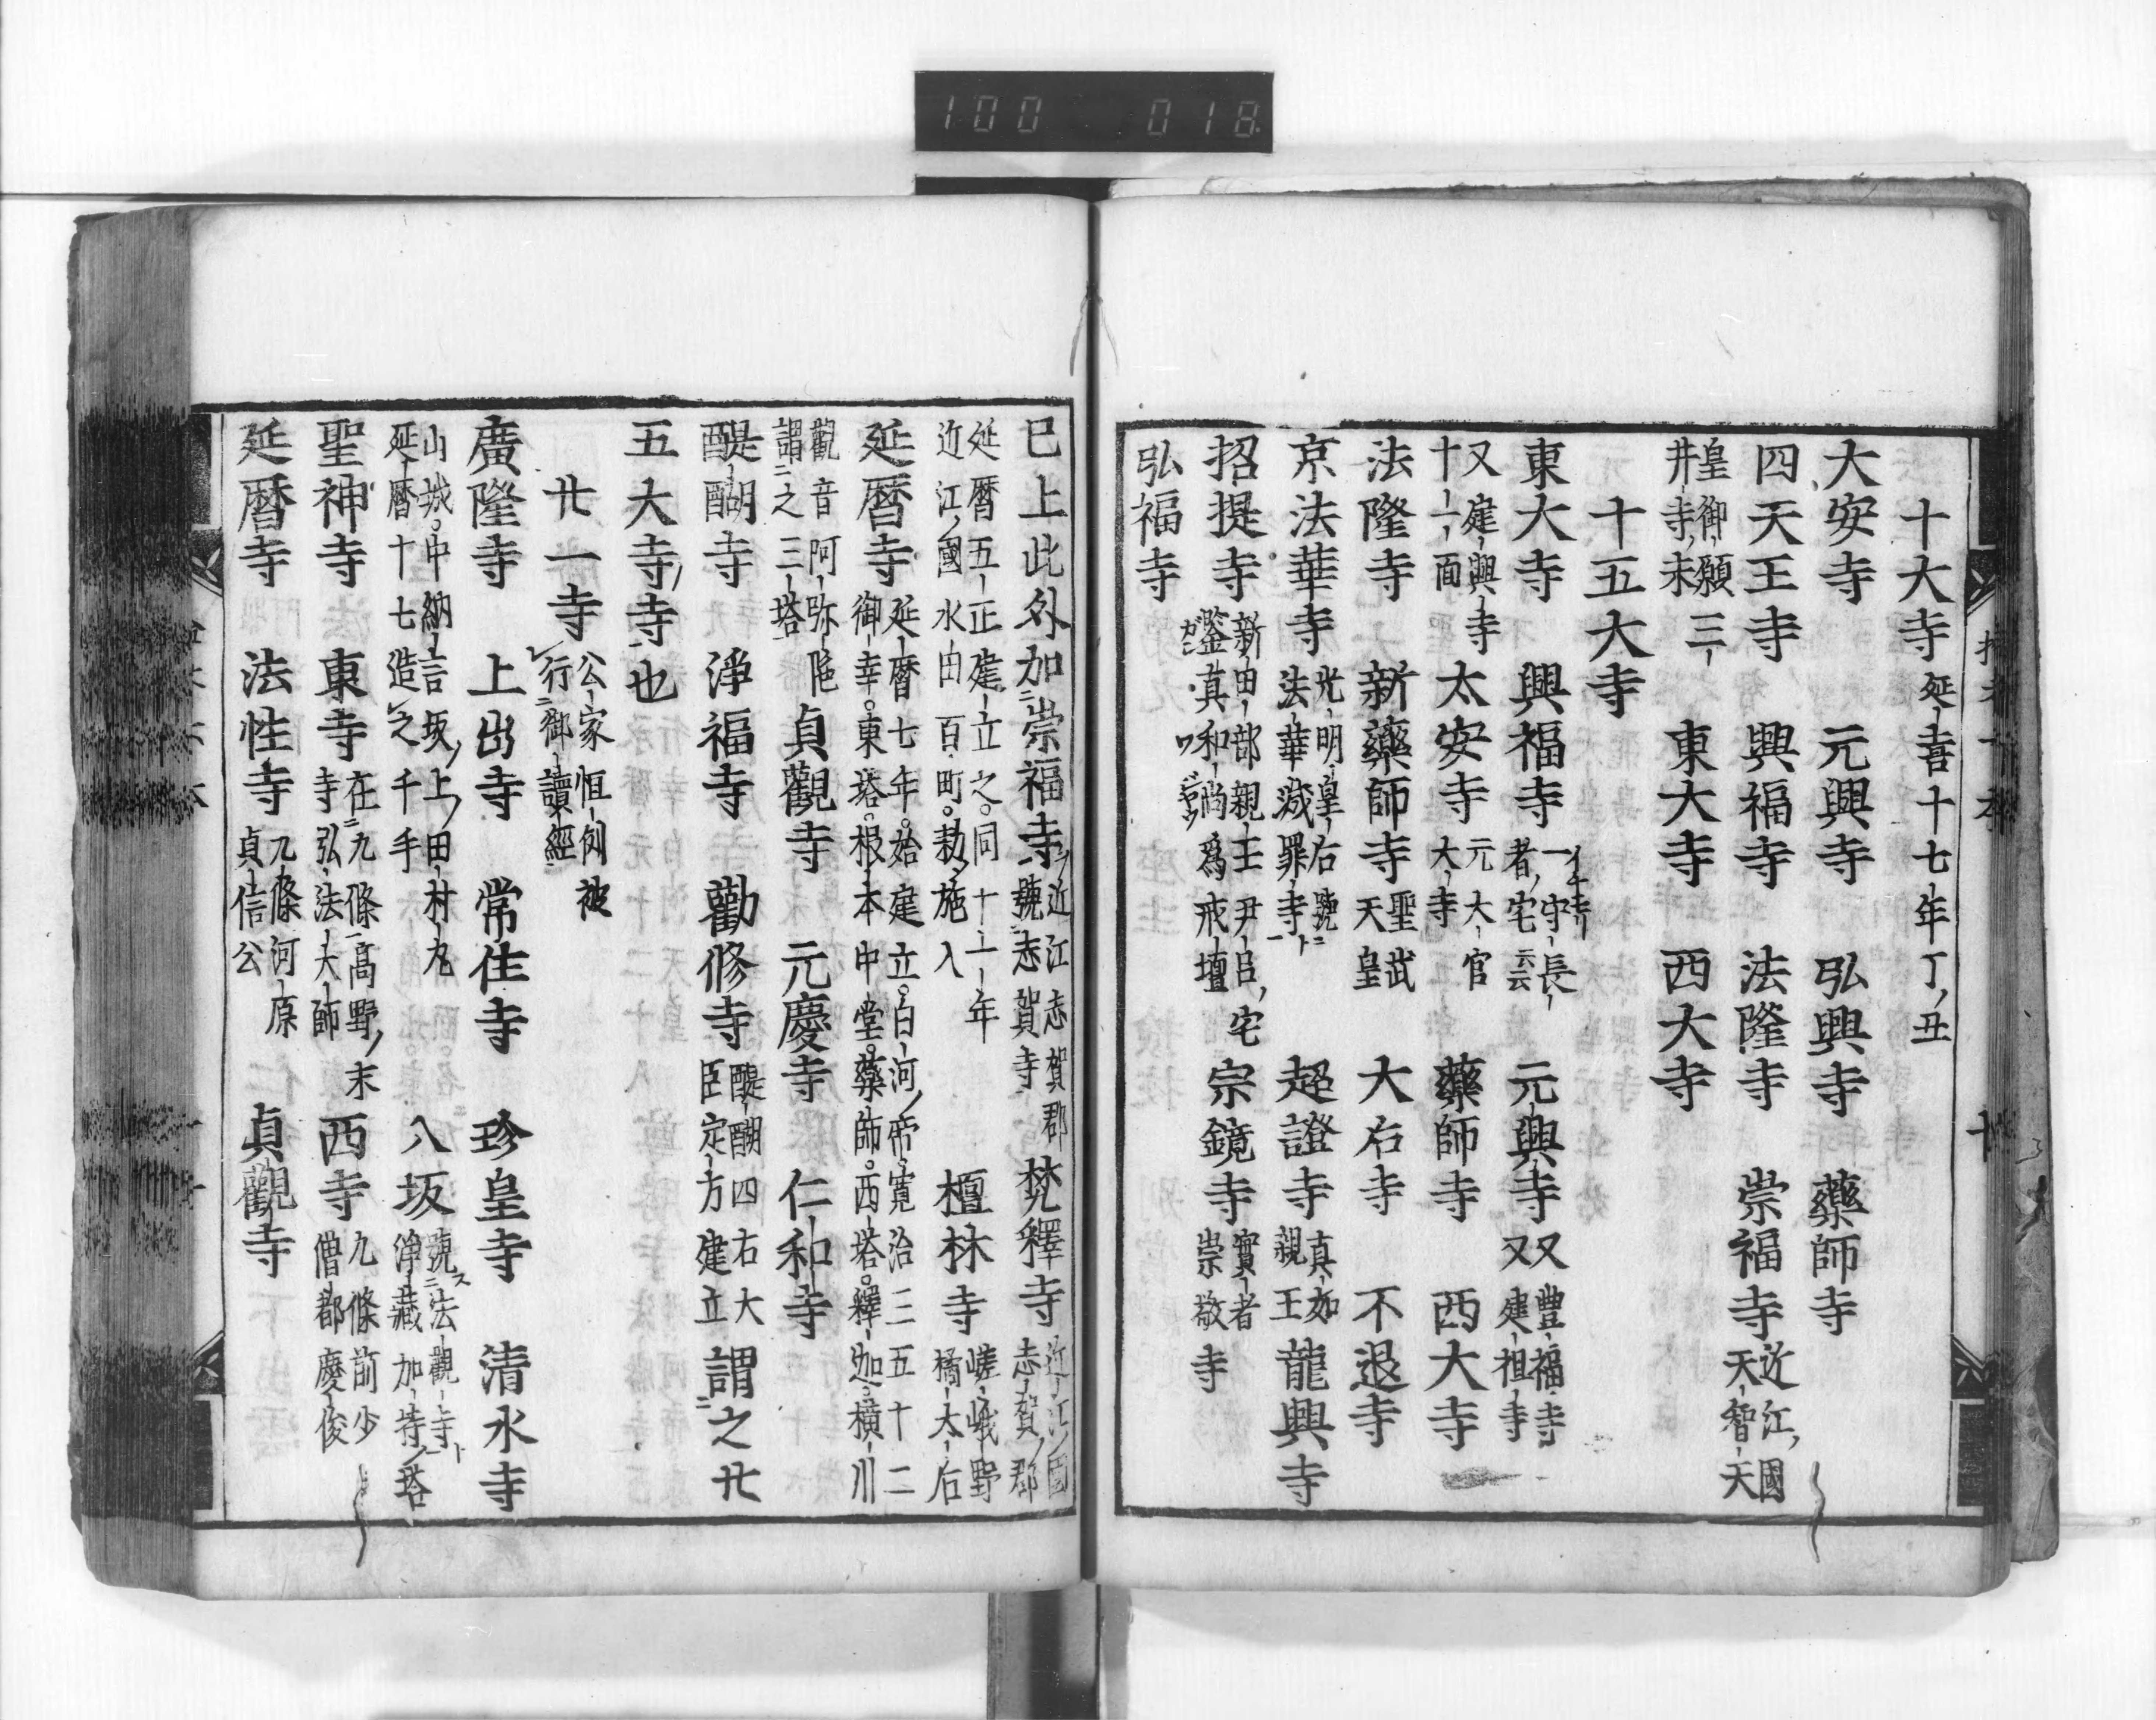 100 018
十大寺 延喜十七年丁丑
大安寺 元興寺 弘興寺 藥師寺
四天王寺 興福寺 法隆寺 崇福寺 近江國 天智天
皇御願三 井寺末 東大寺 西大寺
十五大寺
東大寺 興福寺 守長 者宅云云 元興寺 又豊福寺 又建祖寺
又建興寺 十一面 太安寺 元大官 大寺 藥師寺 西大寺
法隆寺 新藥師寺 聖武 天皇 大后寺 不退寺
京法華寺 光明皇后號 法華滅罪寺 超證寺 真如 親王 龍興寺
招提寺 新田部親王尹臣宅 鑒真和尚爲戒壇 宗鏡寺 實者 崇敬寺
弘福寺
巳上此外加崇福寺 近江志賀郡 號志賀寺 梵釋寺 近江國 志賀郡
延暦五正建立之同十一年 近江國水田百町勅施入 檀林寺 嵯峨野 橘大后
延暦寺 延暦七年始建立白河帝寛治三五十二 御幸東塔根本中堂藥師西塔釋迦横川
觀音阿弥陁 謂之三塔 貞觀寺 元慶寺 仁和寺
醍醐寺 淨福寺 勸修寺 醍醐四右大 臣定方建立 謂之廿
五大寺寺也
廿一寺 公家恒例被 行御讀經
廣隆寺 上出寺 常住寺 珍皇寺 清水寺
山城中納言坂上田村丸 延暦十七造之千手 八坂 號法觀寺 淨藏加持塔
聖神寺 東寺 在九條高野末 寺弘法大師 西寺 九條前少 僧都慶俊
延暦寺 法性寺 九條河原 貞信公 貞觀寺